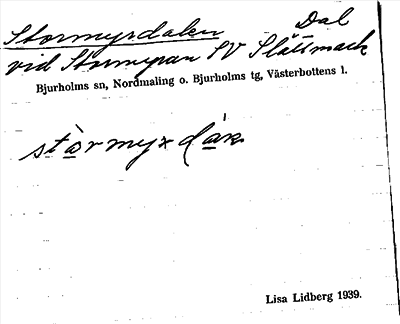 Stormyrdalen Dal
vid Stormyran SV Slättmark
Bjurholms sn, Nordmaling o. Bjurholms tg, Västerbottens l.
Lisa Lidberg 1939.